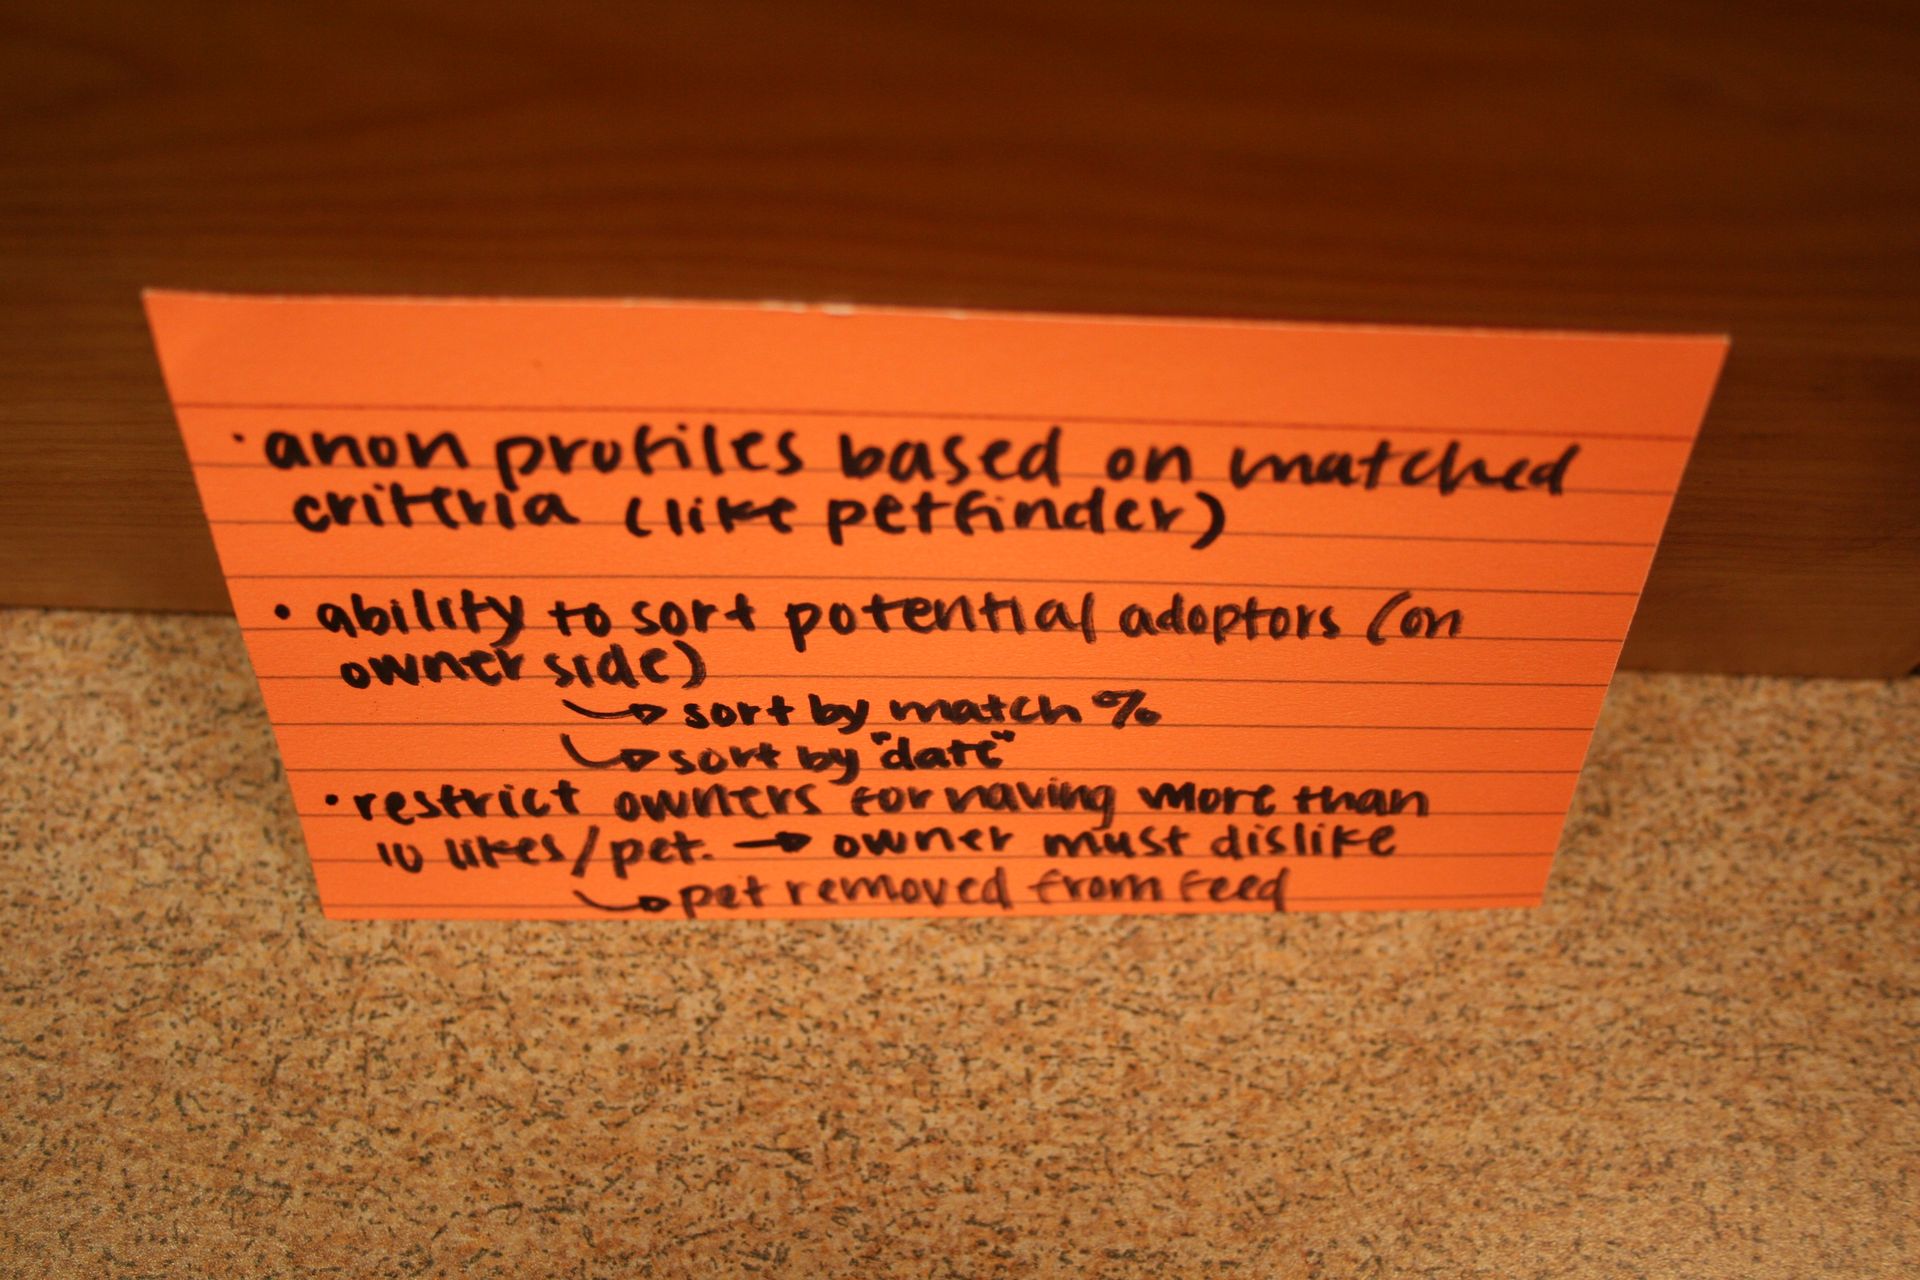 · anon profiles based on matched
criteria (like petfinder)
• ability to sort potential adoptors (on
owner side)
↳ sort by match %
↳ sort by "date"
• restrict owners for having more than
10 likes/pet. → owner must dislike
↳ pet removed from feed